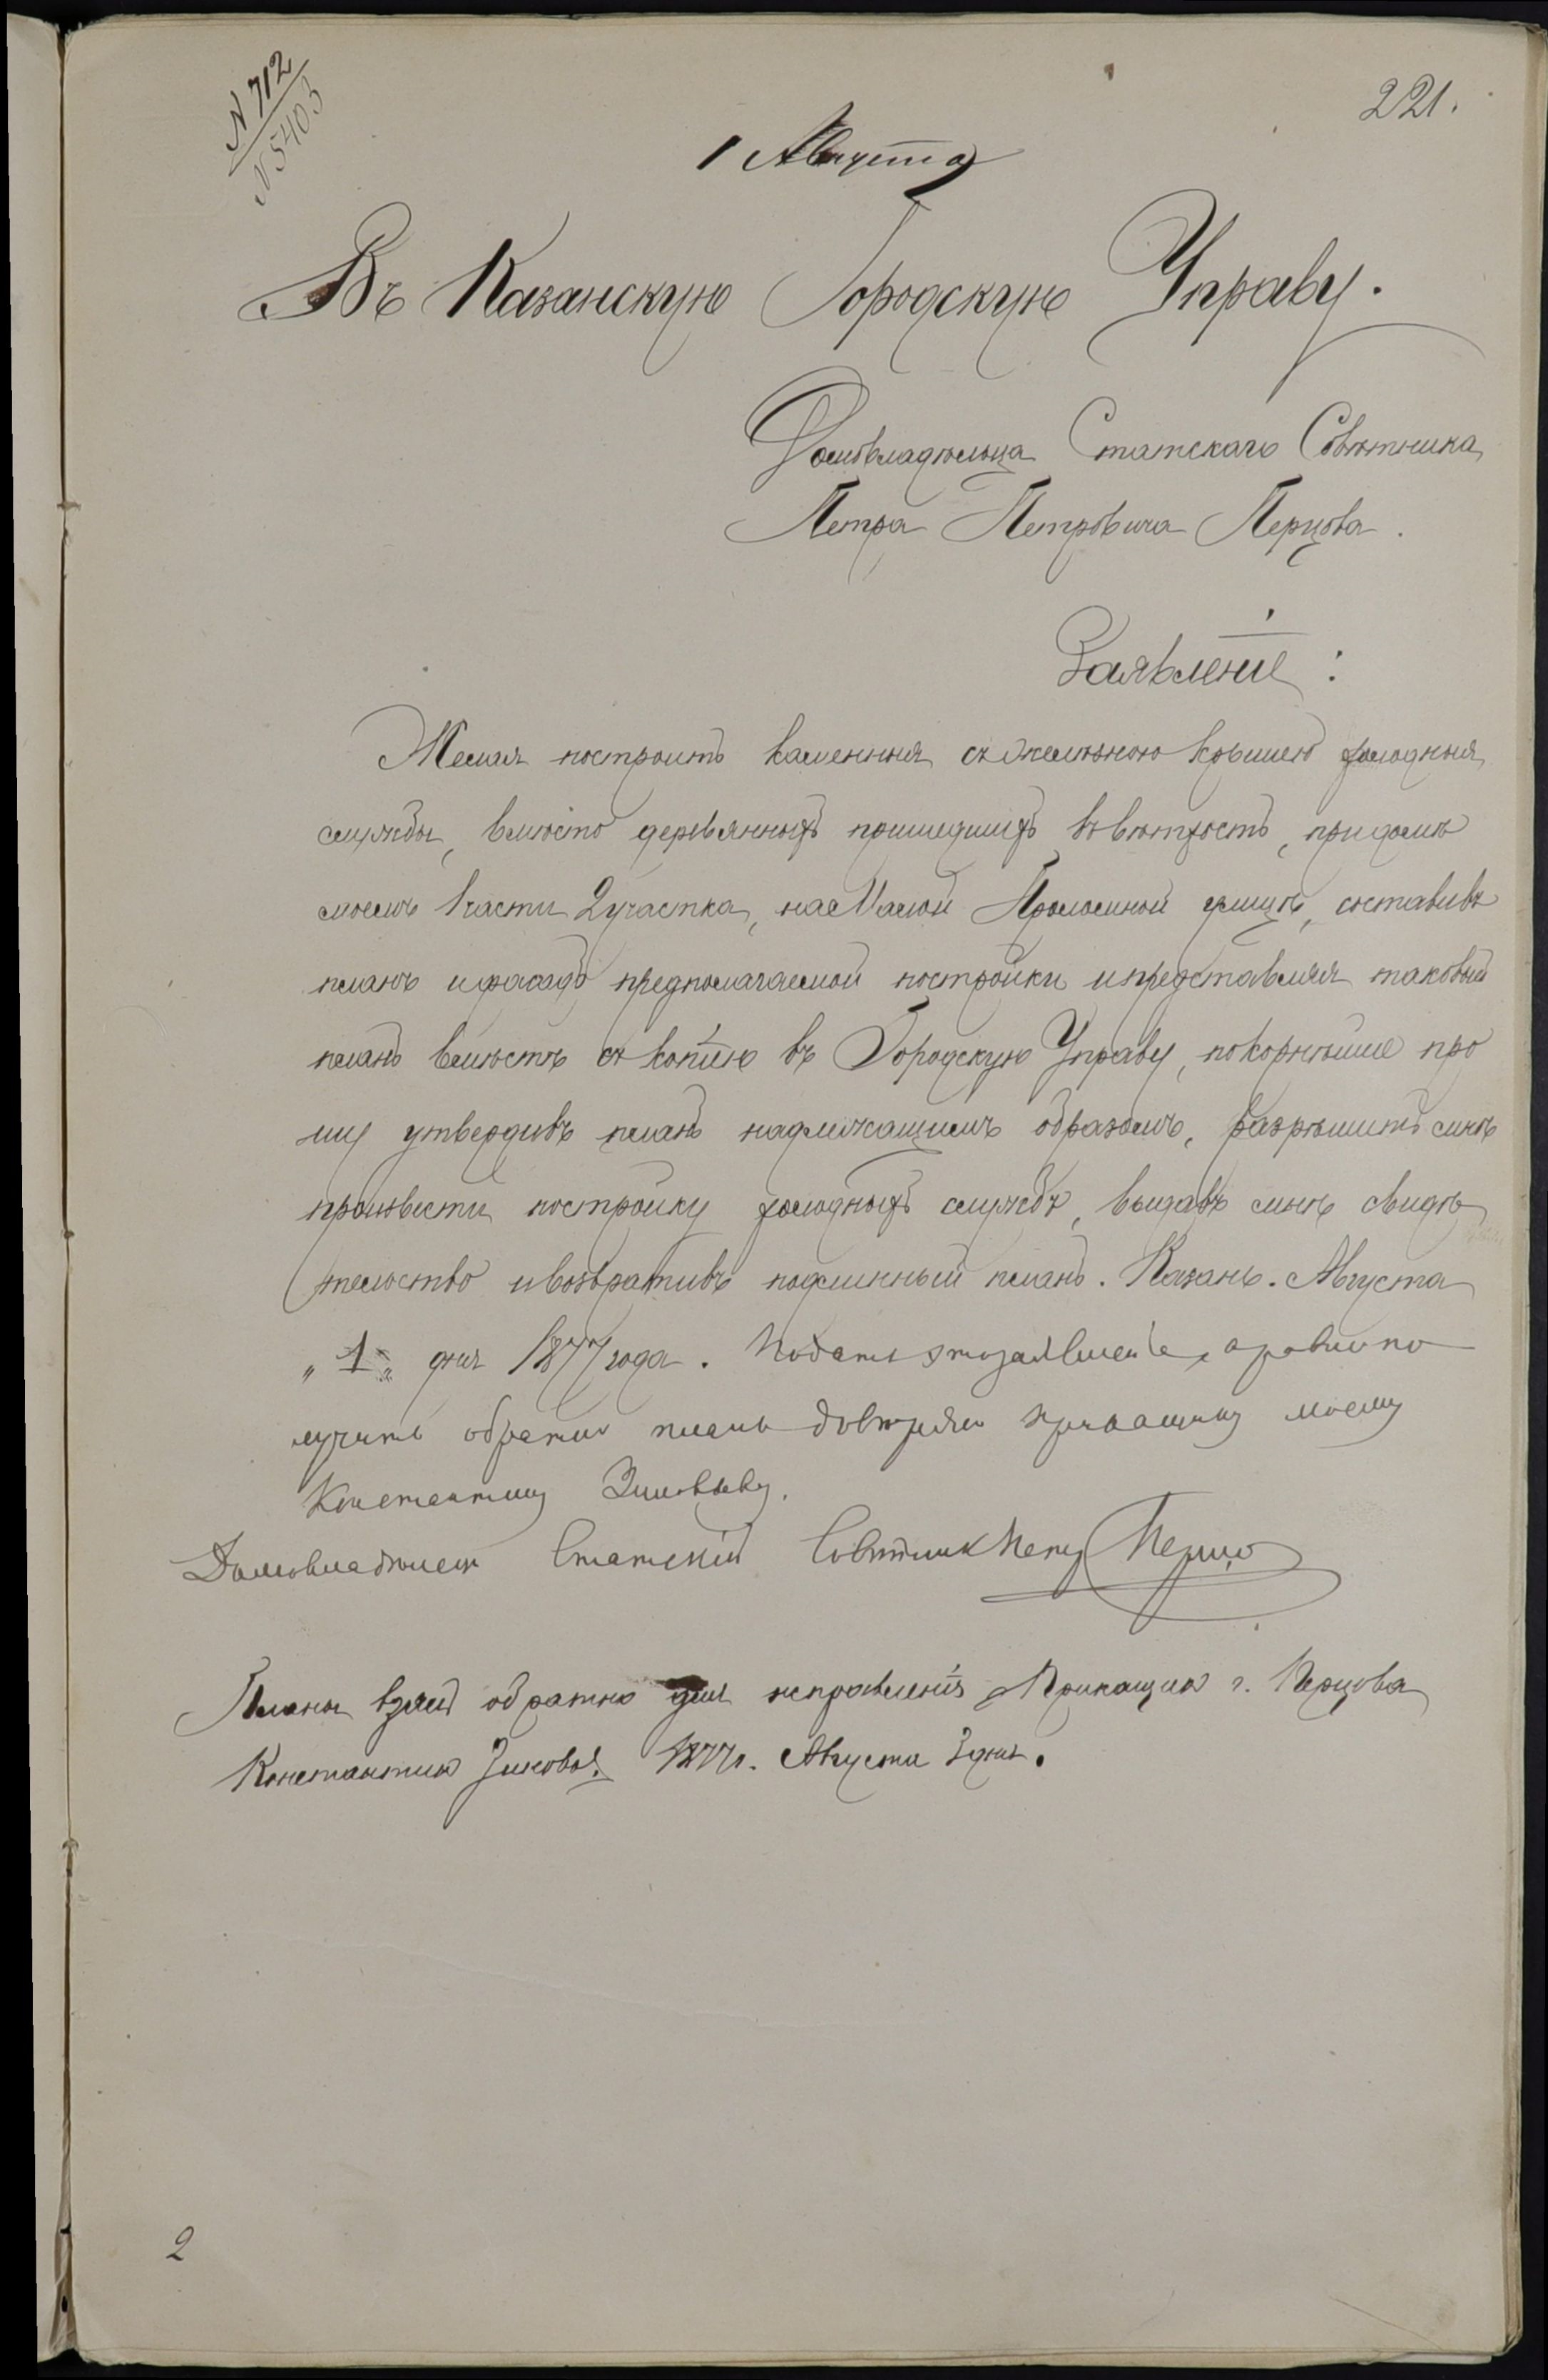 N 712
N 5403
221.
1 Августа
Въ Казанскую Городскую Управу.
Домовладѣльца Статскаго Совѣтника
Петра Петровича Перцова.
Заявленіе:
Желая построить каменныя съ желѣзною крышею холодныя
службы, вмѣсто деревянныхъ пришедшихъ въ вѣтхость, при домѣ
моемъ 1 части 2 участка, на Малой Проломной улицѣ, составивъ
планъ и фасадъ предполагаемой постройки и представляя таковый
планъ вмѣстѣ съ копіею въ Городскую Управу, покорнѣйше про
шу утвердивъ планъ надлежащимъ образомъ, разрѣшить мнѣ
произвести постройку холодныхъ службъ, выдавъ мнѣ свидѣ
тельство и возвративъ подлинный планъ. Казань. Августа
„1„ дня 1877 года. Подать это заявленіе, а равно по
лучить обратно планъ довѣряю прикащику моему
Константину Зиновьеву.
Домовладѣлецъ Статскій Совѣтникъ Петръ Перцо
Планы взялъ обратно для исправленія Прикащикъ г. Перцова
Константинъ 1877 г. Августа 3 дня.
2